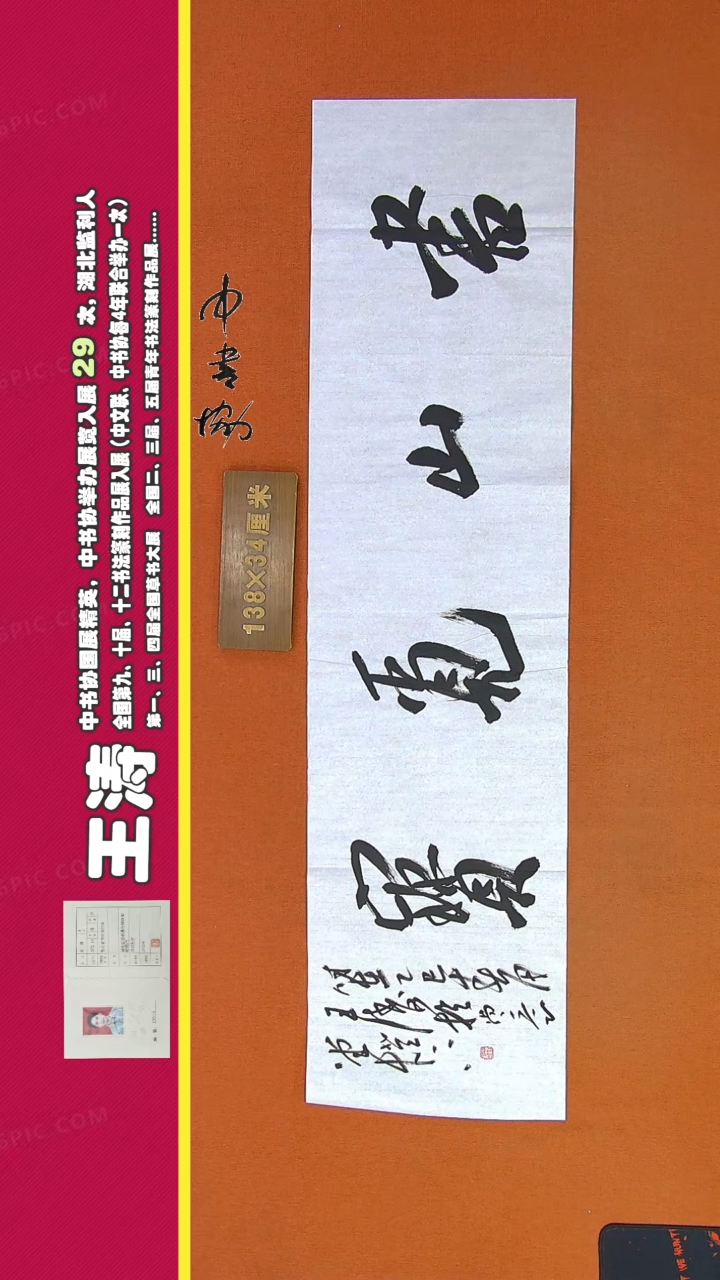 王涛
中书协国展精英，中书协举办展览入展 29 次，湖北监利人
全国第九、十届、十二书法篆刻作品展入展（中文联、中书协每4年联合举办一次）
第一、三、四届全国草书大展 全国二、三届、五届青年书法篆刻作品展......
协書中
138×34厘米
書山覓寳
WE HUNT!